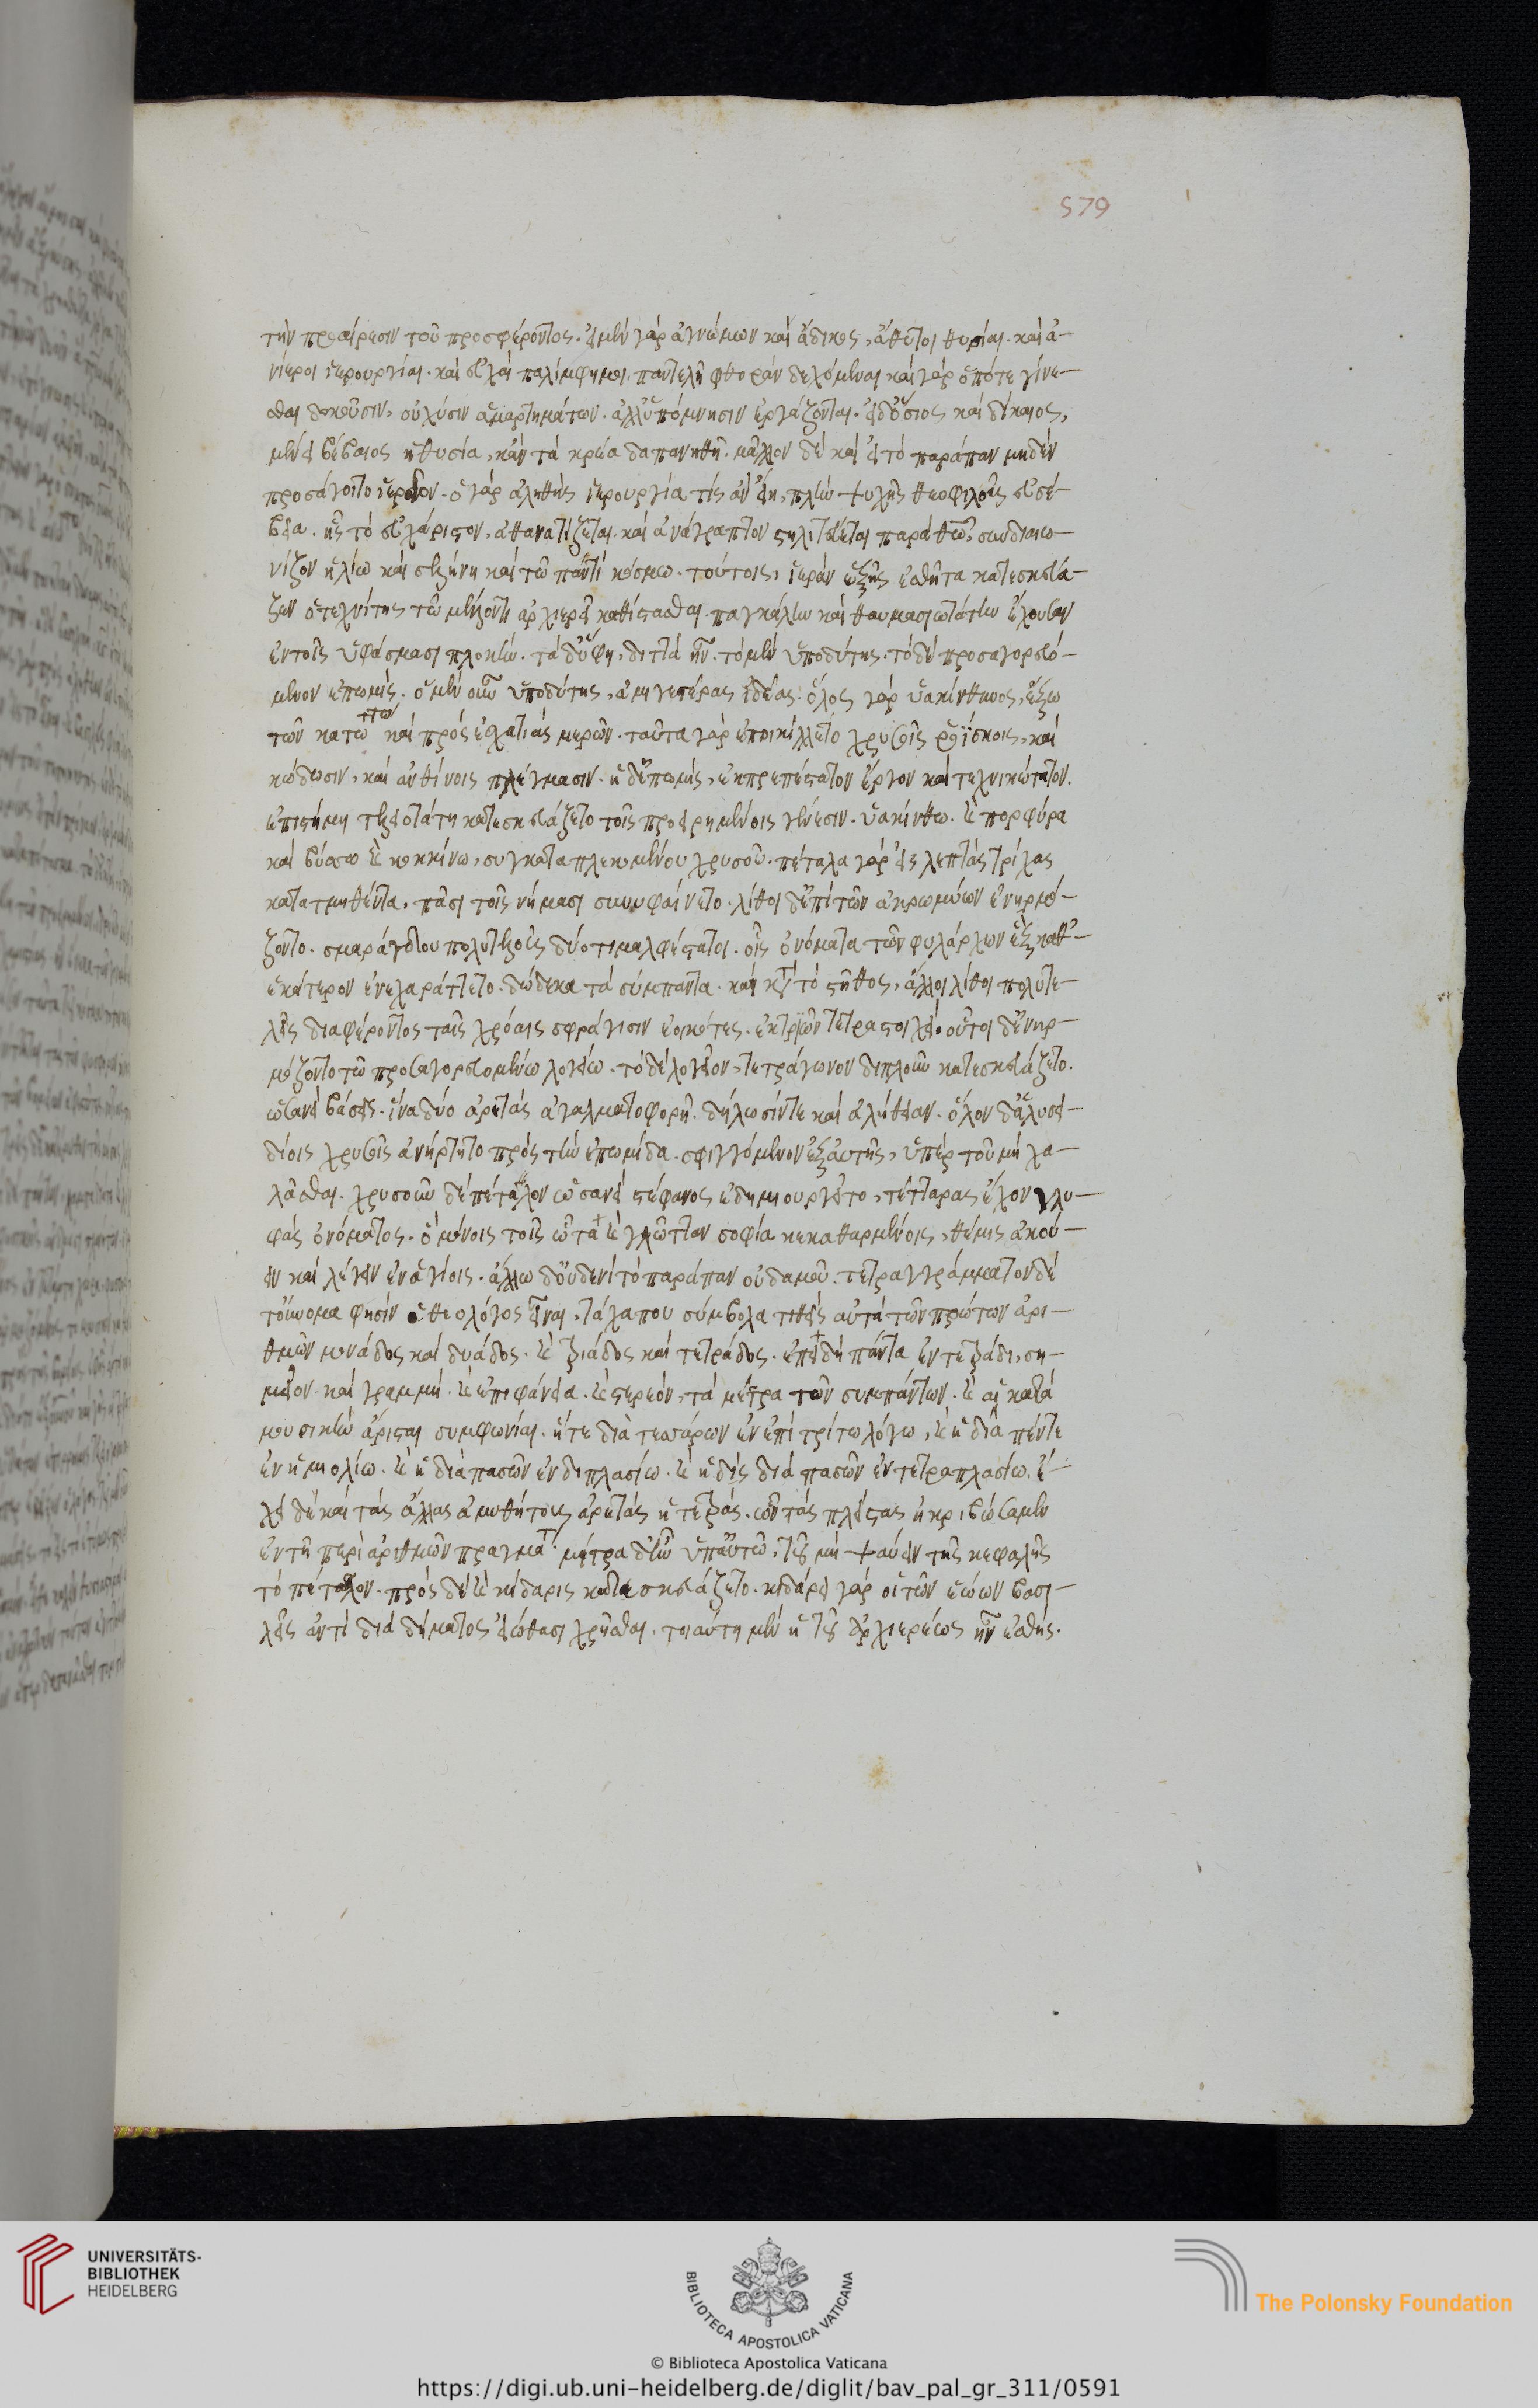 579
τὴν προαίρεσιν τοῦ προσφέροντος. εἰ μὲν γὰρ ἀγνώμων καὶ ἄδικος, ἄθυτοι θυσίαι. καὶ ἀ-
νίεροι ἱερουργίαι. καὶ εὐχαὶ παλίμφημοι. παντελῆ φθορὰν δεχόμεναι καὶ γὰρ ὁπότε γίνε-
σθαι δοκοῦσιν, οὐ λύσιν ἁμαρτημάτων. ἀλλ' ὑπόμνησιν ἐργάζονται. εἰ δ' ὅσιος καὶ δίκαιος,
μένει βέβαιος ἡ θυσία, κἂν τὰ κρέα δαπανηθῇ. μᾶλλον δὲ καὶ εἰ τὸ παράπαν μηδὲν
προσάγοιτο ἱερεῖον. ἡ γὰρ ἀληθὴς ἱερουργία τίς ἂν εἴη, πλὴν ψυχῆς θεοφιλοῦς εὐσέ-
βεια. ἧς τὸ εὐχάριστον, ἀθανατίζεται. καὶ ἀνάγραπτον στηλιτεύεται παρὰ θεῷ, συνδιαιω-
νίζον ἡλίω καὶ σελήνη καὶ τῶ παντὶ κόσμω. τούτοις, ἱερὰν ἑξῆς ἐσθῆτα κατεσκεύα-
ζεν ὁ τεχνίτης τῶ μέλλοντι ἀρχιερεῖ καθίστασθαι. παγκάλην καὶ θαυμασιωτάτην ἔχουσαν
ἐν τοῖς ὑφάσμασι πλοκήν. τὰ δ' ὕφη, διττὰ ἦν. τὸ μὲν ὑποδύτης. τὸ δὲ προσαγορευό-
μενον ἐπωμίς. ὁ μὲν οὖν ὑποδύτης, ἀμιγεστέρας ἰδέας. ὅλος γὰρ ὑακίνθινος, ἔξω
τῶν κατωτάτω καὶ πρὸς ἐσχατιὰς μερῶν. ταῦτα γὰρ ἐποικίλλετο χρυσοῖς ῥοΐσκοις, καὶ
κώδωσιν, καὶ ἀνθίνοις πλέγμασιν. ἡ δ' ἐπωμίς, ἐκπρεπέστατον ἔργον καὶ τεχνικώτατον.
ἐπιστήμη τελειοτάτη κατεσκευάζετο τοῖς προειρημένοις γένεσιν. ὑακίνθω. καὶ πορφύρα
καὶ βύσσω καὶ κοκκίνω, συγκαταπλεκομένου χρυσοῦ. πέταλα γὰρ εἰς λεπτὰς τρίχας
κατατμηθέντα, πᾶσι τοῖς νήμασι συνυφαίνετο. λίθοι δ' ἐπὶ τῶν ἀκρωμίων ἐνηρμό-
ζοντο. σμαράγδου πολυτελοῦς δύο τιμαλφέστατοι. οἷς ὀνόματα τῶν φυλάρχων ἓξ καθ'
ἑκάτερον ἐνεχαράττετο. δώδεκα τὰ σύμπαντα. καὶ κατὰ τὸ στῆθος, ἄλλοι λίθοι πολυτε-
λεῖς διαφέροντες ταῖς χρόαις σφράγισιν ἐοικότες. ἐκ τριῶν τετραστοιχεί. οὗτοι δ' ἐνηρ-
μόζοντο τῶ προσαγορευομένω λογείω. τὸ δὲ λογεῖον, τετράγωνον διπλοῦν κατεσκευάζετο.
ὡσανεὶ βάσις. ἵνα δύο ἀρετὰς ἀγαλματοφορῇ. δήλωσίν τε καὶ ἀλήθειαν. ὅλον δ' ἁλυσει-
δίοις χρυσοῖς ἀνήρτητο πρὸς τὴν ἐπωμίδα. σφιγγόμενον ἐξ αὐτῆς, ὑπὲρ τοῦ μὴ χα-
λᾶσθαι. χρυσοῦν δὲ πέταλον ὡσανεὶ στέφανος ἐδημιουργεῖτο, τέτταρας ἔχον γλυ-
φὰς ὀνόματος. ὃ μόνοις τοῖς ὦτα καὶ γλῶτταν σοφία κεκαθαρμένοις, θέμις ἀκού-
ειν καὶ λέγειν ἐν ἁγίοις. ἄλλω δ' οὐδενὶ τὸ παράπαν οὐδαμοῦ. τετραγράμματον δὲ
τοὔνομα φησὶν ὁ θεολόγος εἶναι, τάχα που σύμβολα τιθεὶς αὐτὰ τῶν πρώτων ἀρι-
θμῶν μονάδος καὶ δυάδος. καὶ τριάδος καὶ τετράδος. ἐπειδὴ πάντα ἐν τετράδι, ση-
μεῖον. καὶ γραμμή. καὶ ἐπιφάνεια. καὶ στερεόν, τὰ μέτρα τῶν συμπάντων. καὶ αἱ κατὰ
μουσικὴν ἄρισται συμφωνίαι. ἥ τε διὰ τεσσάρων ἐν ἐπιτρίτω λόγω, καὶ ἡ διὰ πέντε
ἐν ἡμιολίω. καὶ ἡ διὰ πασῶν ἐν διπλασίω. καὶ ἡ δὶς διὰ πασῶν ἐν τετραπλασίω. ἔ-
χει δὲ καὶ τὰς ἄλλας ἀμυθήτους ἀρετὰς ἡ τετράς. ὧν τὰς πλείστας ἠκριβώσαμεν
ἐν τῇ περὶ ἀριθμῶν πραγματ. μίτρα δ' ἦν ὑπ' αὐτῶ, τοῦ μὴ ψαύειν τῆς κεφαλῆς
τὸ πέταλον. πρὸς δὲ καὶ κίδαρις κατεσκευάζετο. κιδάρει γὰρ οἱ τῶν ἑώων βασι-
λεῖς ἀντὶ διαδήματος εἰώθασι χρῆσθαι. τοιαύτη μὲν ἡ τοῦ ἀρχιερέως ἦν ἐσθής.
UNIVERSITÄTS-
BIBLIOTHEK
HEIDELBERG
BIBLIOTECA APOSTOLICA VATICANA
The Polonsky Foundation
© Biblioteca Apostolica Vaticana
https://digi.ub.uni-heidelberg.de/diglit/bav_pal_gr_311/0591